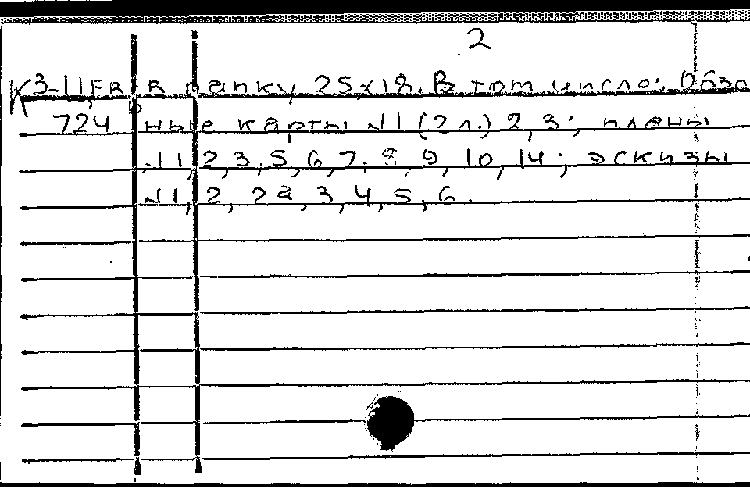 2
К3-11 в папку 25х18. В том числе: Обзо
724 ные карты №1 (2 л.) 2, 3; планы
№1, 2, 3, 5, 6, 7, 8, 9, 10, 14; эскизы
№1, 2, 2а, 3, 4, 5, 6.